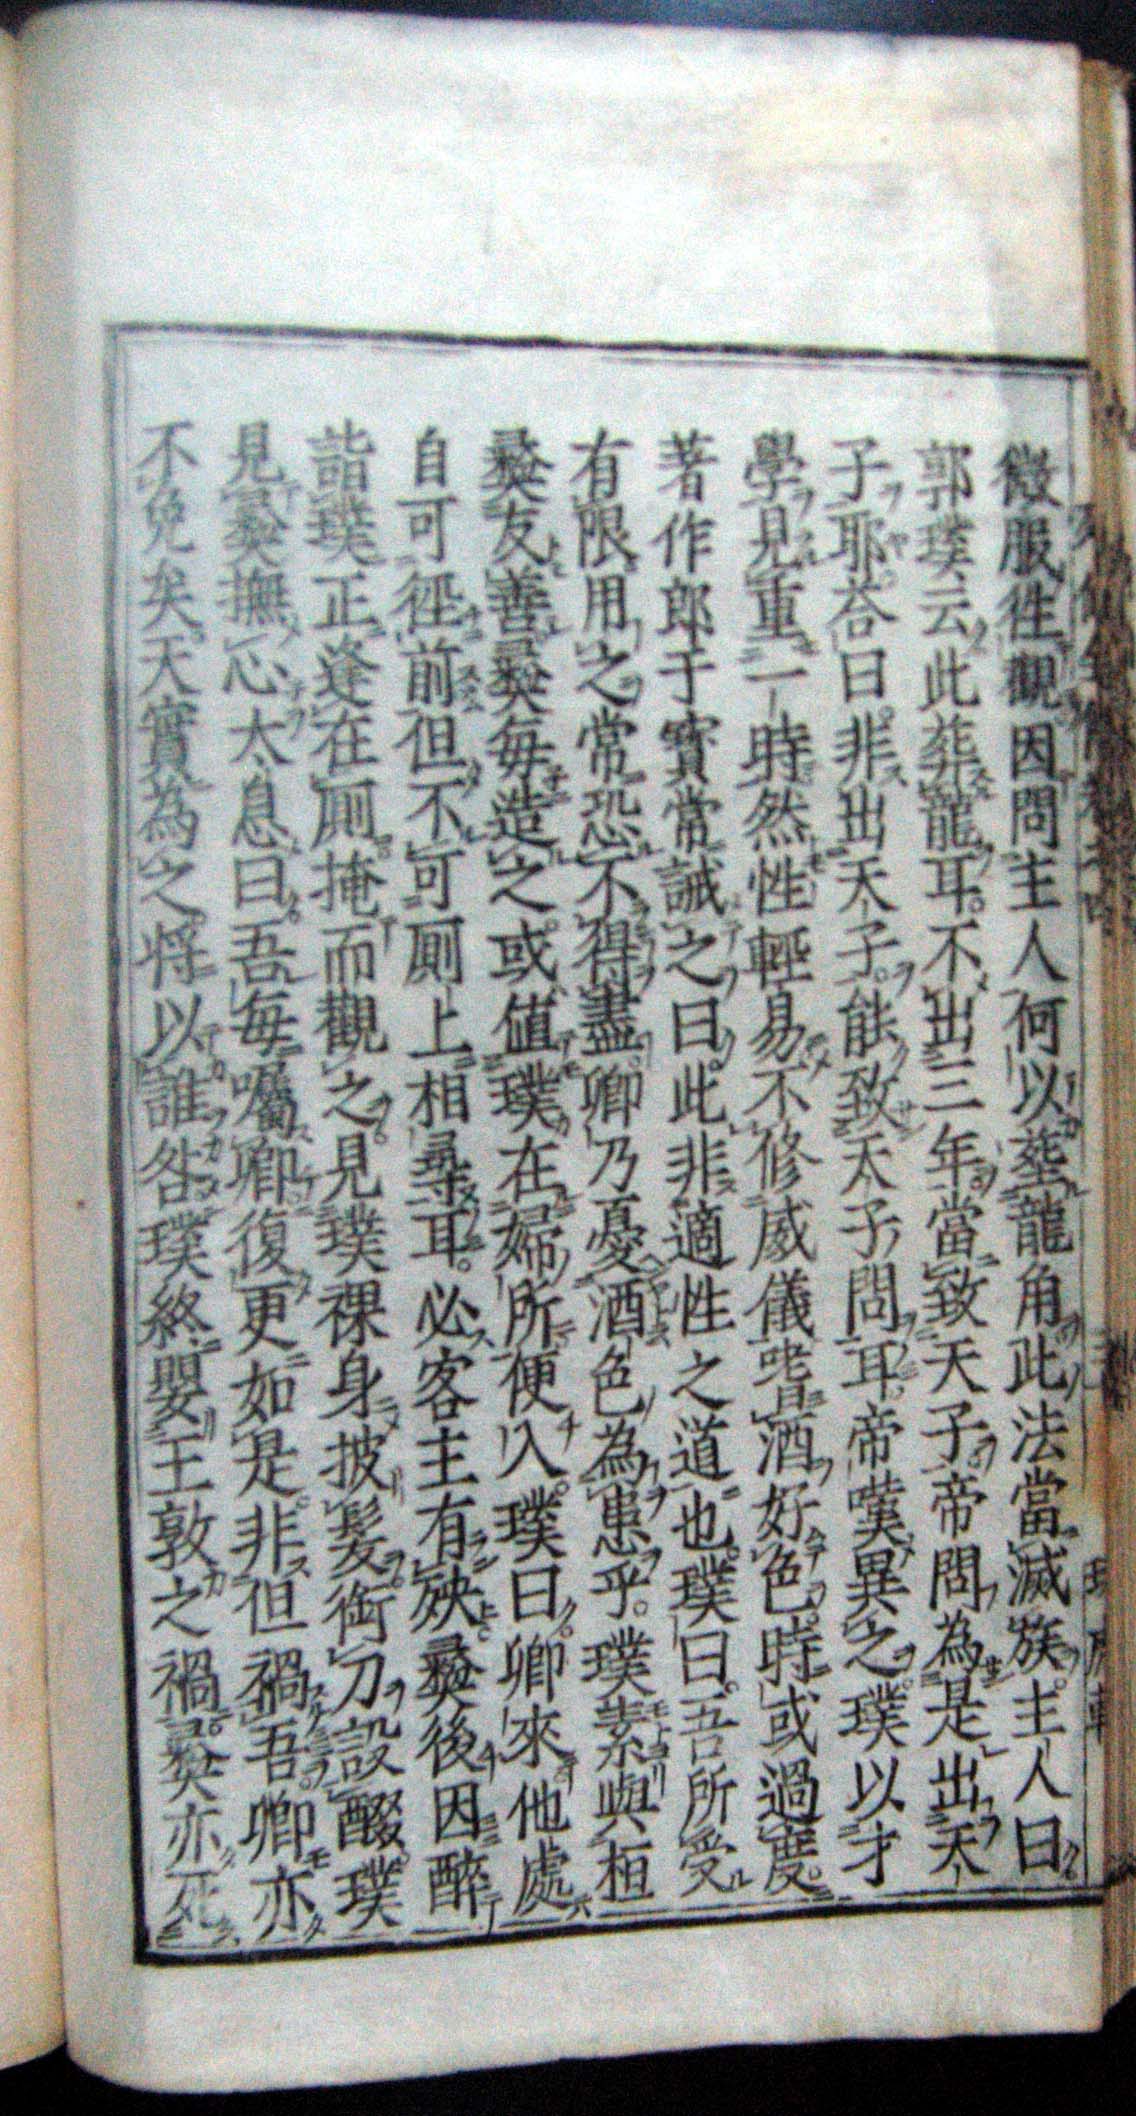 微服徃觀因問主人何以塟龍角此法當滅族主人曰
郭璞云此葬龍耳不出三年當致天子帝問為是出天
子耶荅曰非出天子能致天子問耳帝嘆異之璞以才
學見重一時然性輕易不修威儀嗜酒好色時或過度
著作郎于寳常誡之曰此非適性之道也璞曰吾所受
有限用之常恐不得盡卿乃憂酒色為患乎璞素與桓
彜友善彜每造之或値璞在婦所便入璞曰卿來他處
自可徑前但不可厠上相尋耳必客主有殃彜後因醉
詣璞正逢在厠掩而觀之見璞裸身披髪銜刀設醊璞
見彜撫心太息曰吾每囑卿復更如是非但禍吾卿亦
不免矣天實為之将以誰咎璞終嬰王敦之禍彜亦死